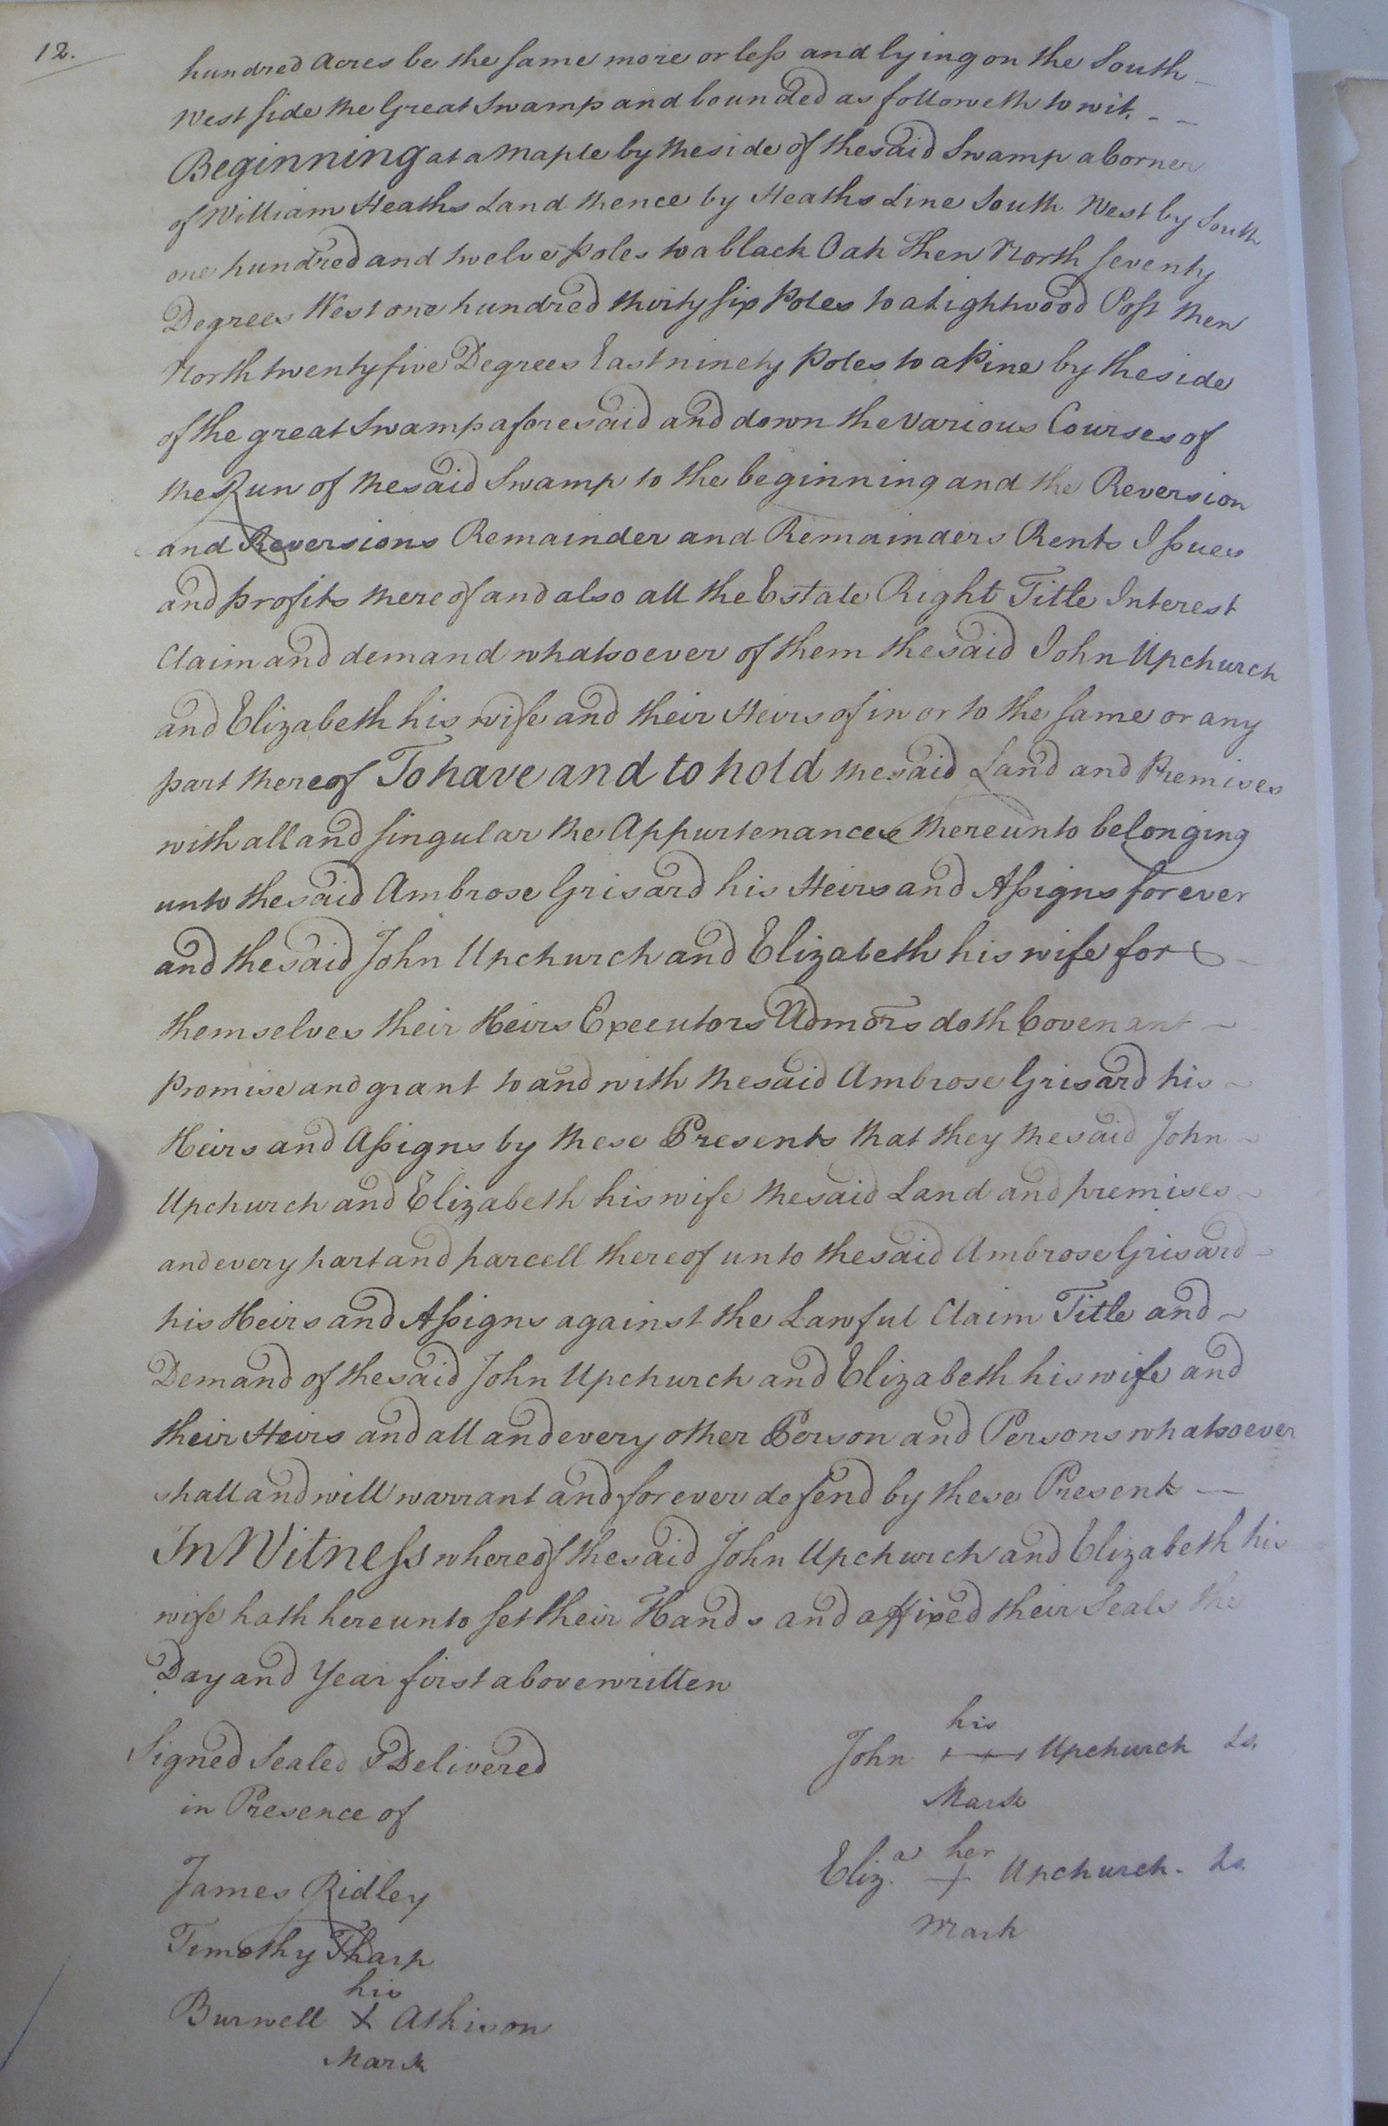 12.
hundred Acres be the same more or less and lying on the South
West side the Great Swamp and bounded as followeth to wit. - -
Beginning at a Maple by the side of the said Swamp a Corner
of William Heaths Land thence by Heaths Line South West by South
one hundred and twelve Poles to a black Oak Then North seventy
Degrees West one hundred thirty six Poles to a Lightwood Post then
North twenty five Degrees East ninety Poles to a Pine by the side
of the great Swamp aforesaid and down the various Courses of
the Run of the said Swamp to the beginning and the Reversion
and Reversions Remainder and Remainders Rents Issues
and profits thereof and also all the Estate Right Title Interest
Claim and demand whatsoever of them the said John Upchurch
and Elizabeth his wife and their Heirs of in or to the same or any
part thereof To have and to hold the said Land and Premises
with all and singular the Appurtenances thereunto belonging
unto the said Ambrose Grisard his Heirs and Assigns forever
and the said John Upchurch and Elizabeth his wife for
themselves their Heirs Executors Admors doth Covenant
Promise and grant to and with the said Ambrose Grisard his
Heirs and Assigns by these Presents that they the said John
Upchurch and Elizabeth his wife the said Land and premises
and every part and parcell thereof unto the said Ambrose Grisard
his Heirs and Assigns against the Lawful Claim Title and
Demand of the said John Upchurch and Elizabeth his wife and
their Heirs and all and every other Person and Persons whatsoever
shall and will warrant and forever defend by these Presents
In Witness whereof the said John Upchurch and Elizabeth his
wife hath hereunto set their Hands and affixed their Seals the
Day and Year first above written
Signed Sealed & Delivered
in Presence of
James Ridley
Timothy Tharp
his
Burwell X Atkison
Mark
his
John +++ Upchurch Ls.
Mark
her
Eliz.a + Upchurch. Ls.
Mark